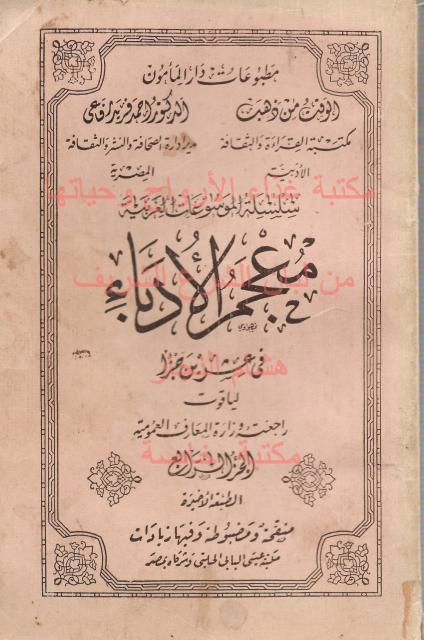 مطبوعات دار المأمون
الوقت من ذهب
الدكتور أحمد فريد رفاعي
مكتبة القراءة والثقافة
مدير إدارة الصحافة والنشر والثقافة
الأدبية
المصرية
مكتبة غذاء الأرواح وحياتها
سلسلة الموسوعات العربية
معجم الأدباء
من
الشريف
في عشرين جزءا
هشام
لياقوت
راجعته وزارة المعارف العمومية
مكتبة خاصة
الجزء الرابع
الطبعة الأخيرة
منقحة ومضبوطة وفيها زيادات
مكتبة عيسى البابى الحلبى وشركاه بمصر